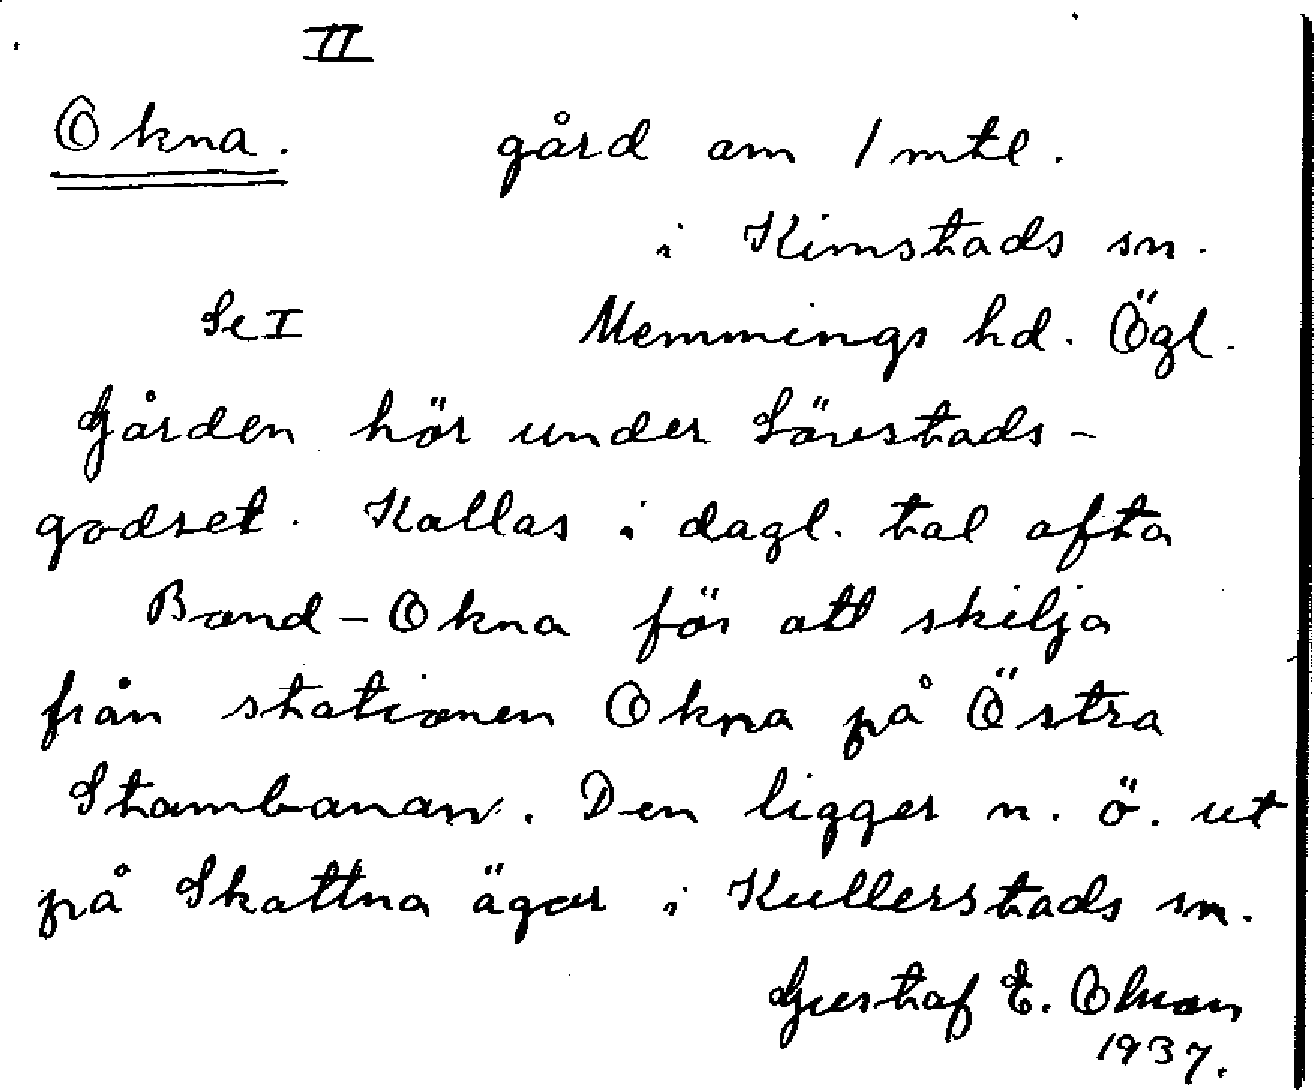 II
Okna. gård om 1 mtl.
i Kimstads sn.
Se I Memmings hd. Ögl.
Gården hör under Lövstads-
godset. Kallas i dagl. tal ofta
Bond-Okna för att skilja
från stationen Okna på Östra
Stambanan. Den ligger n. ö. ut
på Skattna ägor i Kullerstads sn.
Gustaf E.
1937.